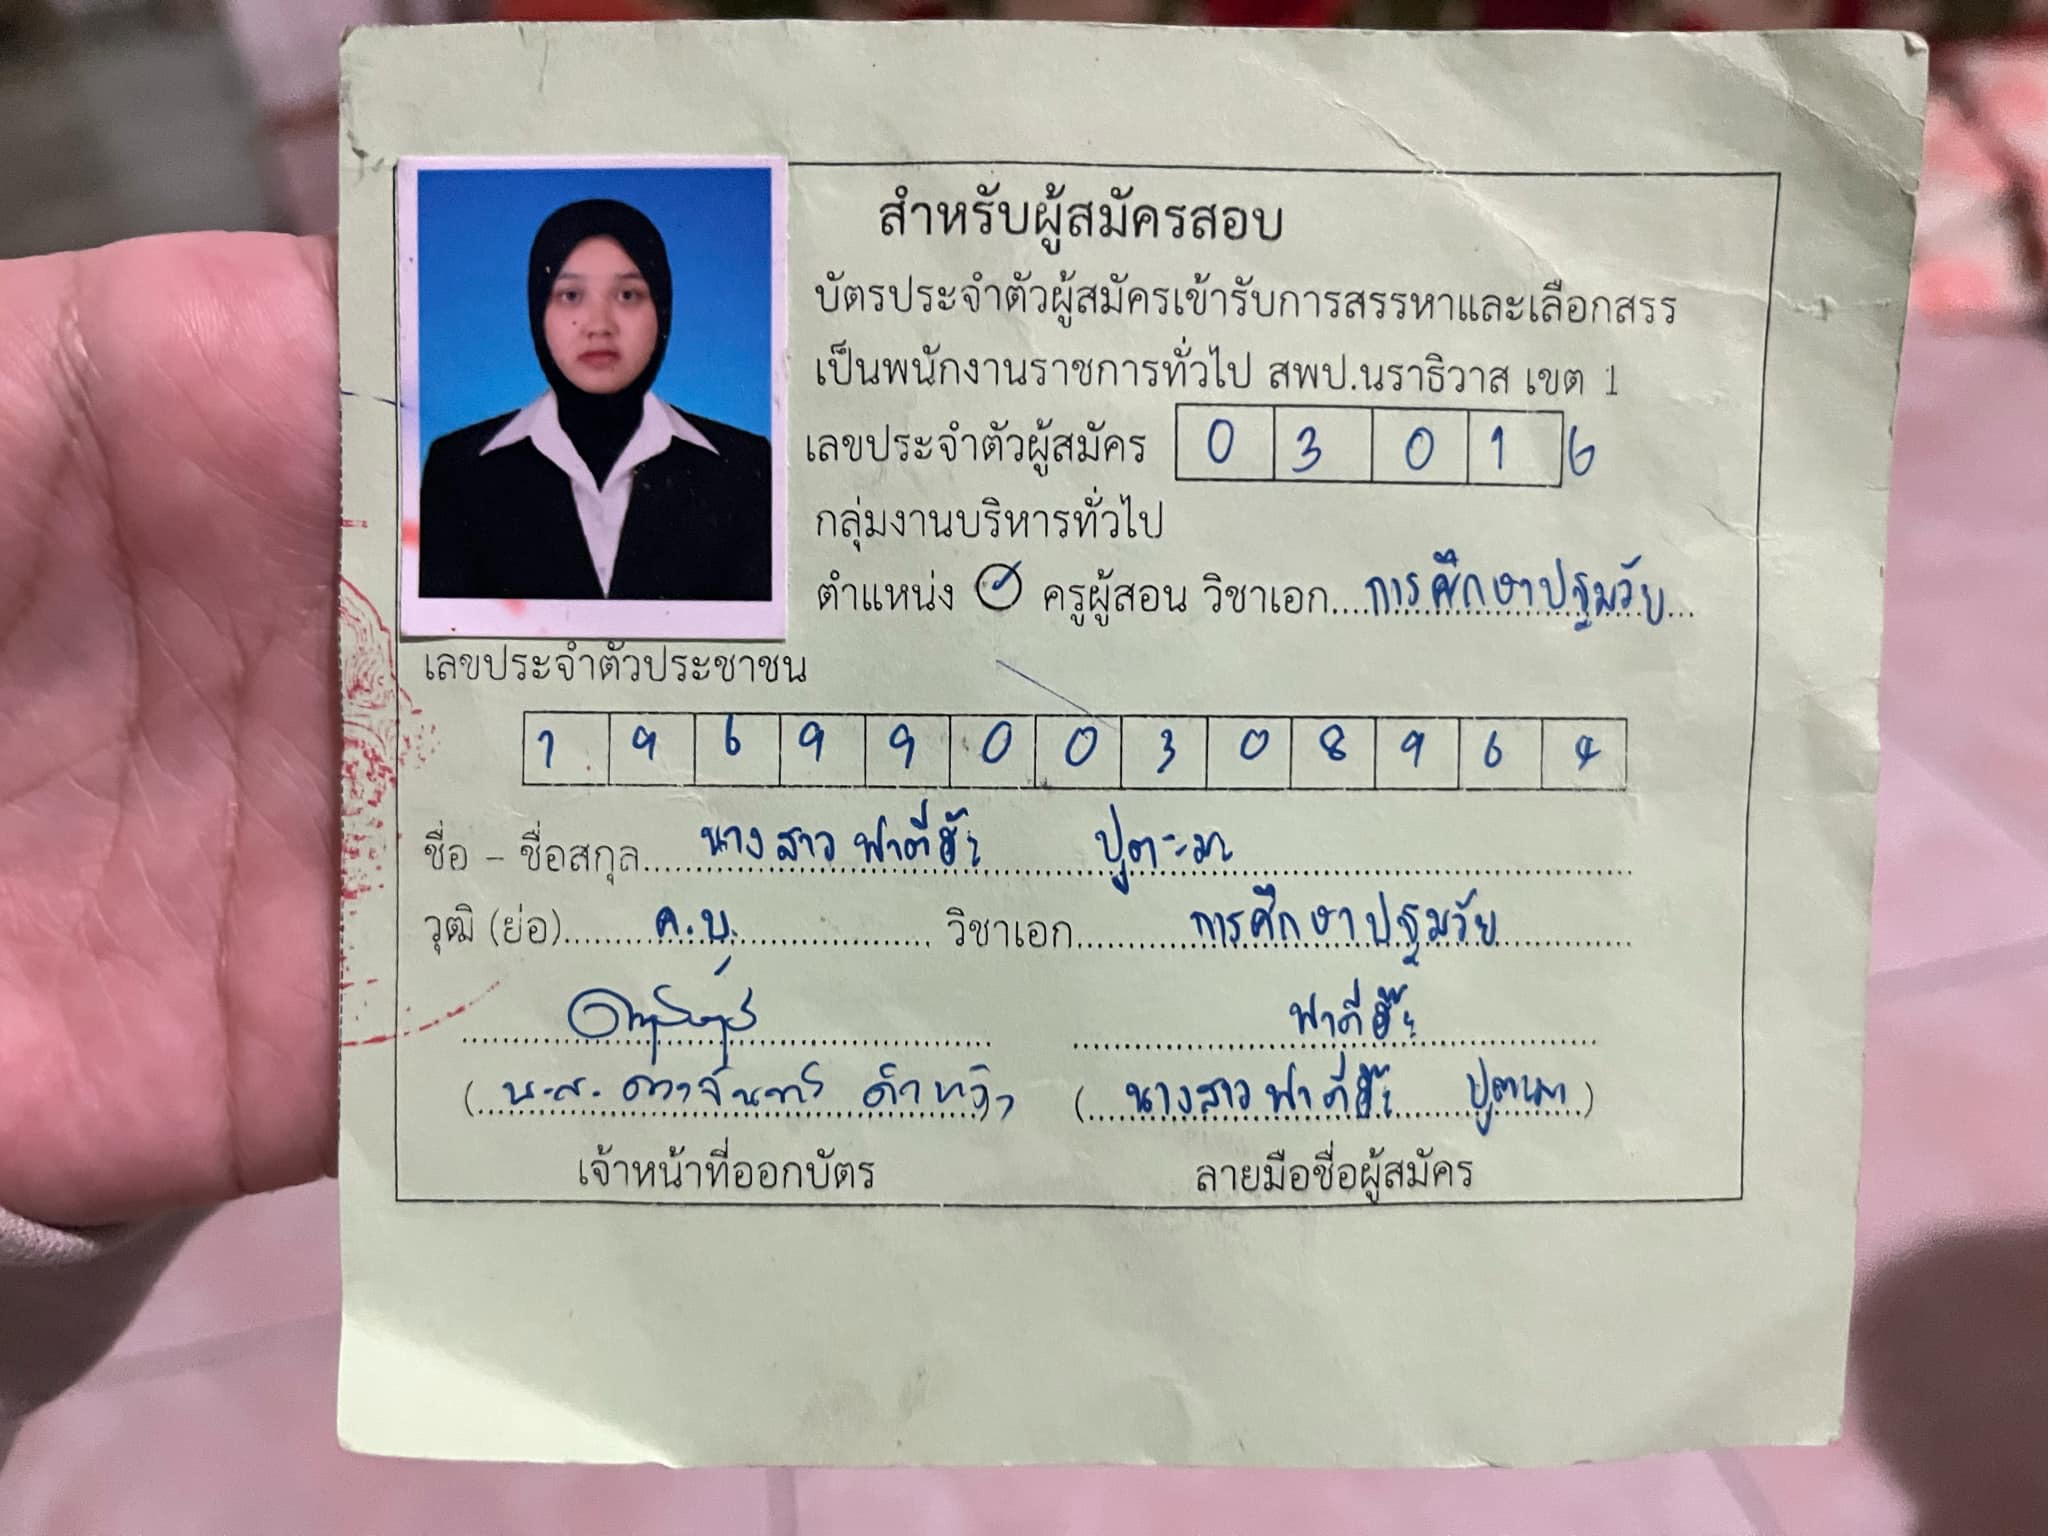 สำหรับผู้สมัครสอบ
บัตรประจำตัวผู้สมัครเข้ารับการสรรหาและเลือกสรร
เป็นพนักงานราชการทั่วไป สพป.นราธิวาส เขต 1
เลขประจำตัวผู้สมัคร 0 3 0 1 6
กลุ่มงานบริหารทั่วไป
ตำแหน่ง ครูผู้สอน วิชาเอก....การศึกษาปฐมวัย...
เลขประจำตัวประชาชน
1 9 6 9 9 0 0 3 0 8 9 6 4
ชื่อ - ชื่อสกุล....นางสาวฟาตีฮ๊ะ ปูตะมา
วุฒิ (ย่อ)....ค.บ. วิชาเอก....การศึกษาปฐมวัย
ฟาตีฮ๊ะ
(น.ส. ดวงจันทร์) (นางสาวฟาตีฮ๊ะ ปูตะมา)
เจ้าหน้าที่ออกบัตร ลายมือชื่อผู้สมัคร